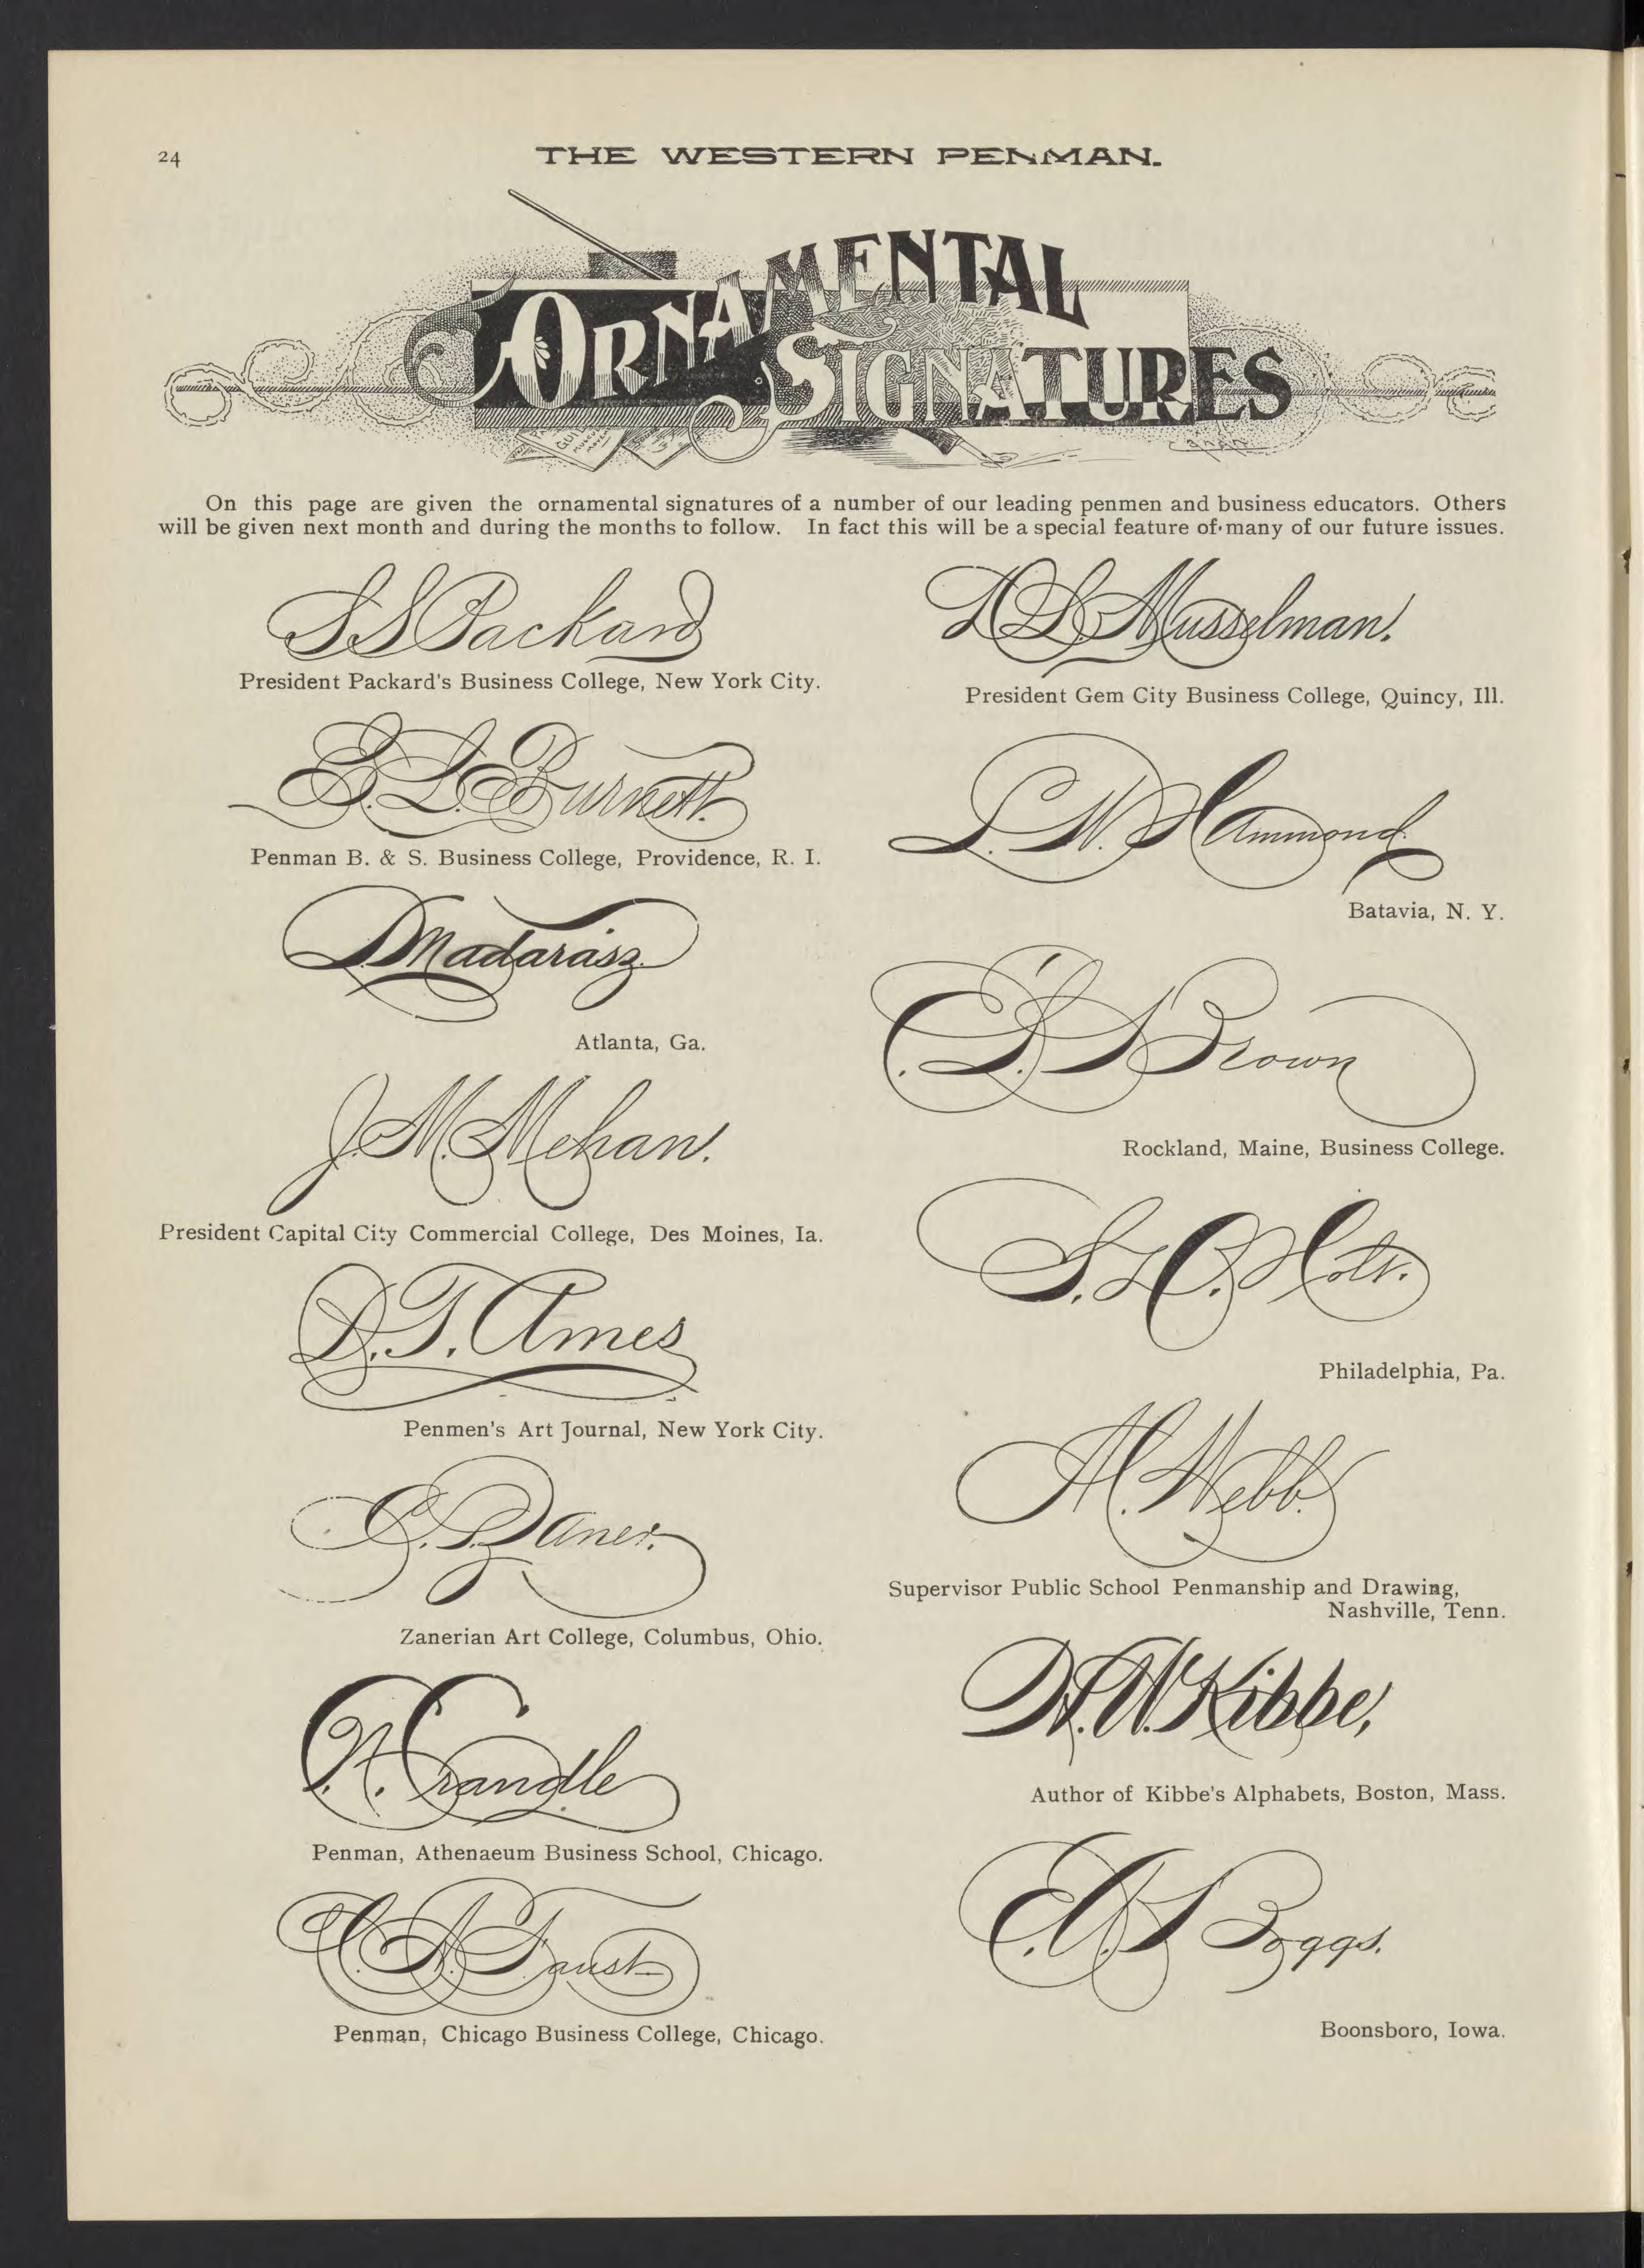 24
THE WESTERN PENMAN.
ORNAMENTAL
SIGNATURES
On this page are given the ornamental signatures of a number of our leading penmen and business educators. Others
will be given next month and during the months to follow. In fact this will be a special feature of many of our future issues.
S S Packard
President Packard's Business College, New York City.
E. L. Burnett.
Penman B. & S. Business College, Providence, R. I.
L. Madarasz.
Atlanta, Ga.
J. M. Mehan.
President Capital City Commercial College, Des Moines, Ia.
D. T. Ames
Penmen's Art Journal, New York City.
C. P. Zaner.
Zanerian Art College, Columbus, Ohio.
C. N. Crandle
Penman, Athenaeum Business School, Chicago.
C. A. Faust
Penman, Chicago Business College, Chicago.
D L Musselman.
President Gem City Business College, Quincy, Ill.
L. W. Hammond.
Batavia, N. Y.
Brown
Rockland, Maine, Business College.
Holt.
Philadelphia, Pa.
A. C. Webb.
Supervisor Public School Penmanship and Drawing,
Nashville, Tenn.
H. W. Kibbe,
Author of Kibbe's Alphabets, Boston, Mass.
Boggs.
Boonsboro, Iowa.